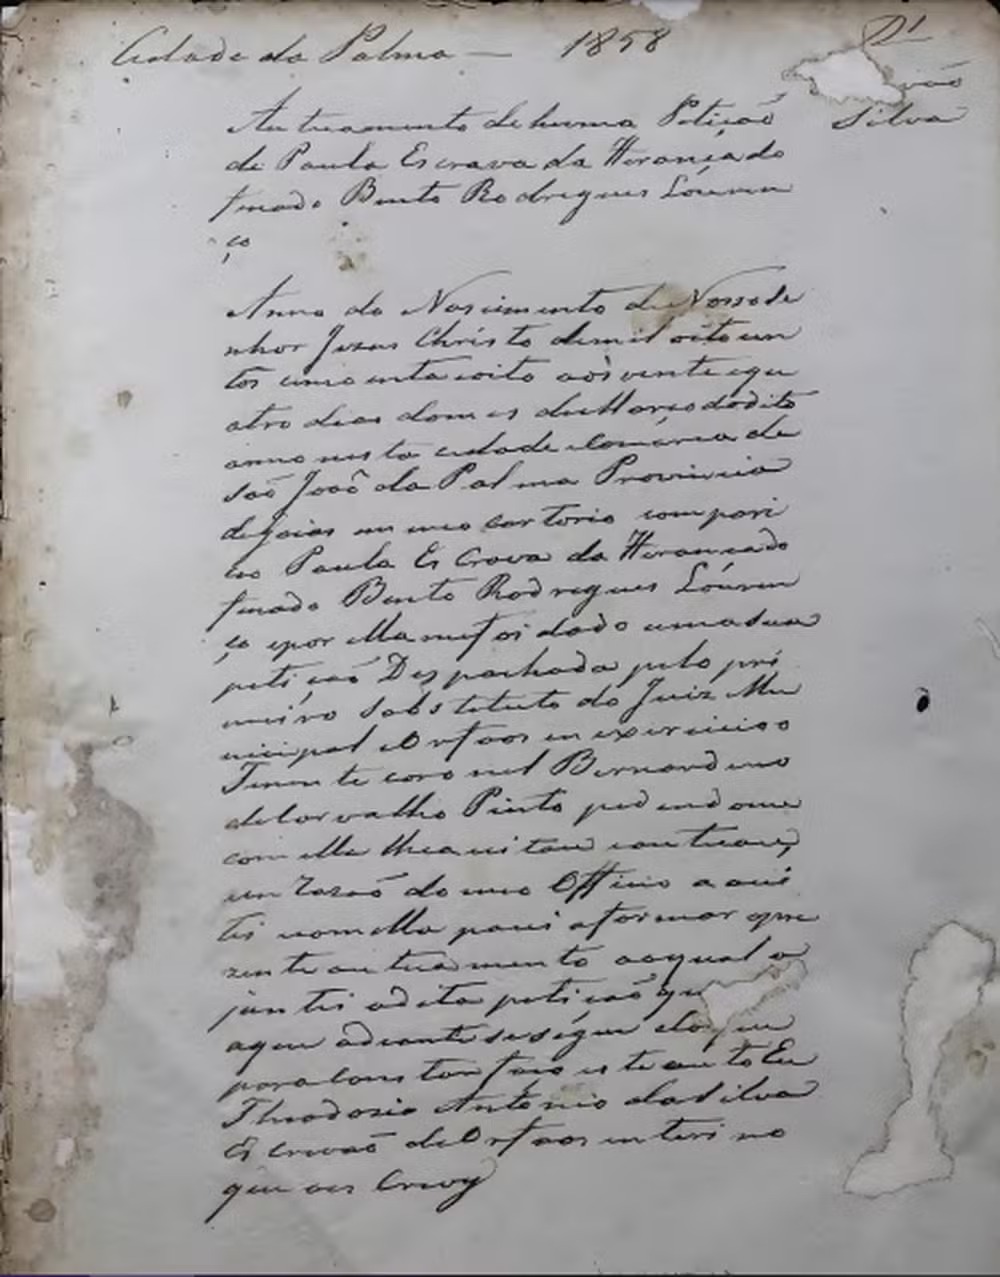 Cidade da Palma — 1858
vão
Silva
Autuamento de huma Petição
de Paula Escrava da Herança do
finado Bento Rodrigues Louren
ço
Anno do Nascimento de Nosso Se
nhor Jezus Christo de mil oito cen
tos cincoenta e oito aos vinte e qu
atro dias do mes de Março do dito
anno nesta cidade e Comárca de
São João da Palma Provincia
de Goias em meo Cartorio compari
ceo Paula Escrava da Herança do
finado Bento Rodrigues Louren
ço e por ella me foi dado uma sua
petição Despachada pelo pri
meiro Sobstituto do Juiz Mu
nicipal e Orfaos em exercicio o
Tenente coronel Bernardino
de Carvalho Pinto pedindome
com ella lhe aceitasse e autuasse,
em razaõ do meo Officio a acei
tei com ella pacei a formar o pre
zente autuamento ao qual a
juntei a dita petição qu
aqui adiante se ségue do que
para Constar faço este auto Eu
Theodozio Antonio da Silva
Escrivaõ de Orfaos interino
que o es Crevy